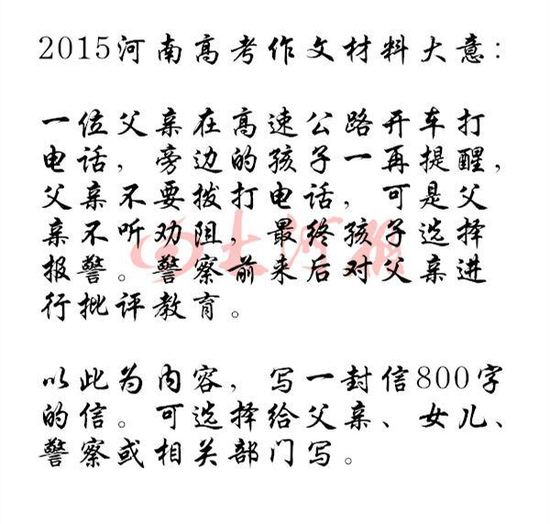 2015河南高考作文材料大意:
一位父亲在高速公路开车打
电话,旁边的孩子一再提醒,
父亲不要拨打电话,可是父
亲不听劝阻,最终孩子选择
报警。警察前来后对父亲进
行批评教育。
以此为内容,写一封信800字
的信。可选择给父亲、女儿、
警察或相关部门写。
大河报